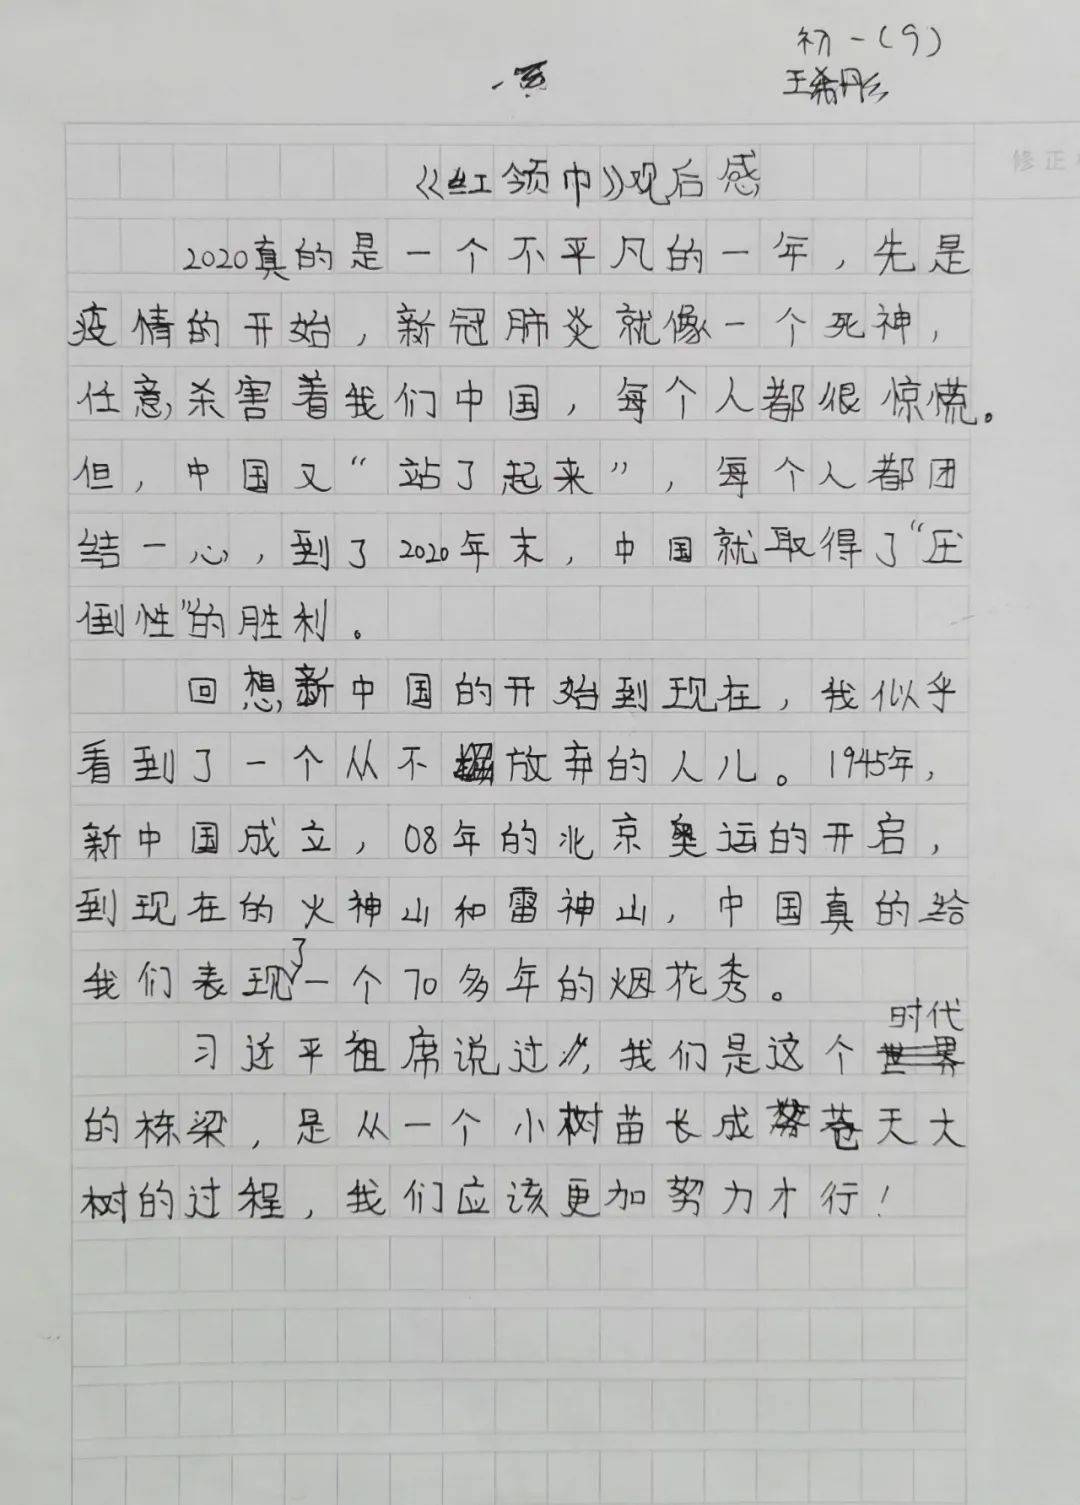 初一(9)
王希彤
《红领巾》观后感
2020真的是一个不平凡的一年，先是
疫情的开始，新冠肺炎就像一个死神，
任意杀害着我们中国，每个人都很惊慌。
但，中国又“站了起来”，每个人都团
结一心，到了2020年末，中国就取得了“压
倒性”的胜利。
回想新中国的开始到现在，我似乎
看到了一个从不放弃的人儿。1945年，
新中国成立，08年的北京奥运的开启，
到现在的火神山和雷神山，中国真的给
我们表现了一个70多年的烟花秀。
习近平祖席说过，我们是这个时代
的栋梁，是从一个小树苗长成苍天大
树的过程，我们应该更加努力才行！
修正